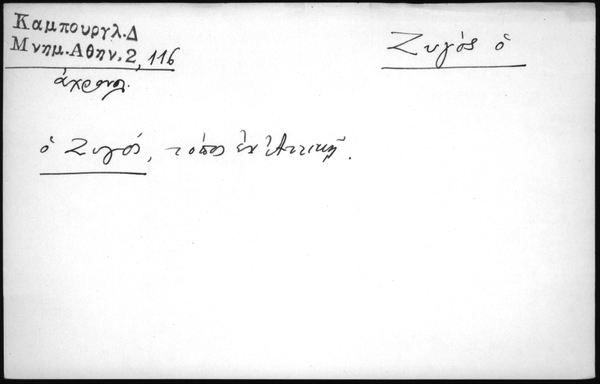 Καμπουργλ.Δ
Μνημ.Αθην.2, 116
ἀχρονολ.
Ζυγός ὁ
ὁ Ζυγός, τόπος ἐν Ἀττικῇ.